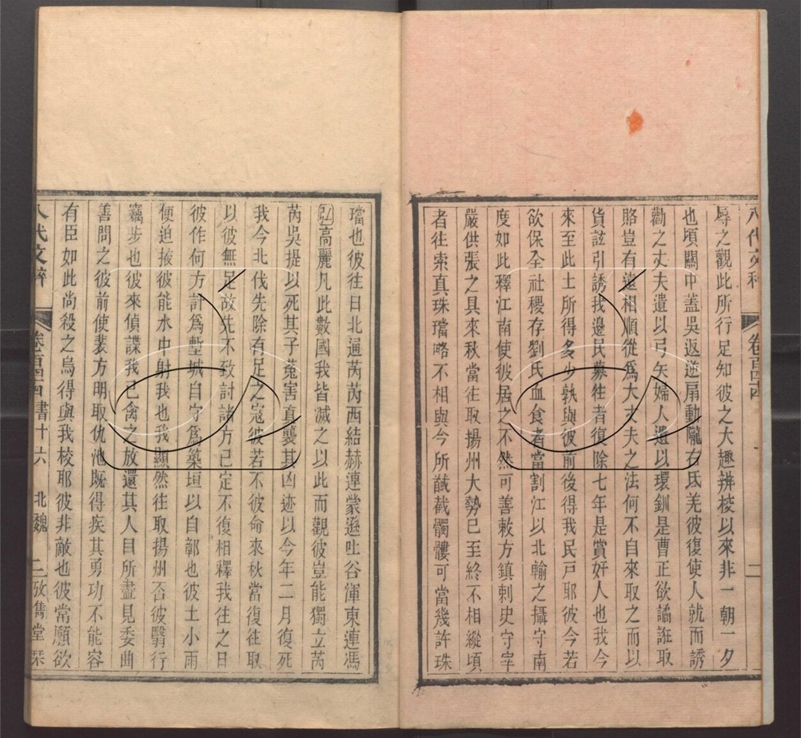 八代文粹
卷一百四十四
二
辱之觀此所行足知彼之大趣辨校以來非一朝一夕
也頃關中蓋吳返逆扇動隴右氐羌彼復使人就而誘
勸之丈夫遺以弓矢婦人遺以環釧是曹正欲譎誑取
賂豈有遠相順從爲大丈夫之法何不自來取之而以
貨詃引誘我邊民募往者復除七年是賞奸人也我今
來至此土所得多少孰與彼前後得我民戸耶彼今若
欲保全社稷存劉氏血食者當割江以北輸之攝守南
度如此釋江南使彼居之不然可善敕方鎮刺史守宰
嚴供張之具來秋當往取揚州大勢已至終不相縱頃
者往索真珠璫略不相與今所馘截髑髏可當幾許珠
璫也彼往日北通芮芮西結赫連蒙遜吐谷渾東連馮
弘高麗凡此數國我皆滅之以此而觀彼豈能獨立芮
芮吳提以死其子菟害真襲其凶迹以今年二月復死
我今北伐先除有足之寇彼若不從命來秋當復往取
以彼無足故先不致討諸方已定不復相釋我往之日
彼作何方計爲塹城自守爲築垣以自鄣也彼土小雨
便迫掖彼能水中射我也我顯然往取揚州不若彼翳行
竊步也彼來偵諜我已禽之放還其人目所盡見委曲
善問之彼前使裴方明取仇池既得疾其勇功不能容
有臣如此尚殺之烏得與我校耶彼非敵也彼當願欲
八代文粹
卷一百四十四 書十六
北魏
二 攷雋堂栞